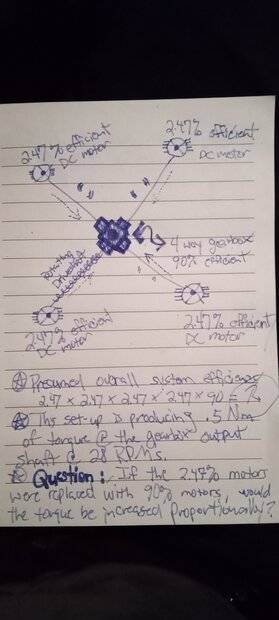 2.47% efficient
DC motor
2.47% efficient
DC motor
4 way gearbox
90% efficient
Rotating
Driveline
2.47% efficient
DC motor
2.47% efficient
DC motor
Presumed overall system efficiency
2.47 x 2.47 x 2.47 x 2.47 x 90 = ?
This set-up is producing .5 Nm
of torque @ the gearbox output
shaft @ 28 RPMs.
Question: If the 2.47% motors
were replaced with 90% motors, would
the torque be increased proportionally?